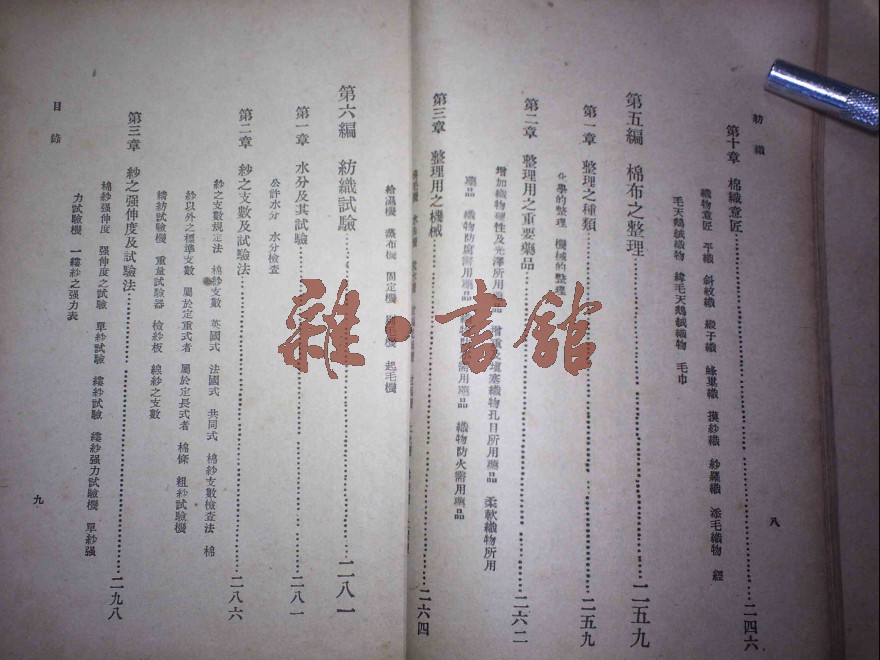 紡織
第十章 棉織意匠……二四六
織物意匠 平織 斜紋織 緞子織 蜂巢織 摸紗織 紗羅織 添毛織物 經
毛天鵝絨織物 緯毛天鵝絨織物 毛巾
第五編 棉布之整理……二五九
第一章 整理之種類……二五九
化學的整理 機械的整理
第二章 整理用之重要藥品……二六二
增加織物硬性及光澤所用藥品 增重及填塞織物孔目所用藥品 柔軟織物所用
藥品 織物防腐需用藥品 需用藥品 織物防火需用藥品
第三章 整理用之機械……二六四
八
給濕機 蒸布機 固定機 起毛機
第六編 紡織試驗……二八一
第一章 水分及其試驗……二八一
公許水分 水分檢查
第二章 紗之支數及試驗法……二八六
紗之支數規定法 棉紗支數 英國式 法國式 共同式 棉紗支數檢查法 棉
紗以外之標準支數 屬於定重式者 屬於定長式者 棉條 粗紗試驗機
精紡試驗機 重量試驗器 檢紗板 線紗之支數
第三章 紗之强伸度及試驗法……二九八
棉紗强伸度 强伸度之試驗 單紗試驗 縷紗試驗 縷紗强力試驗機 單紗强
力試驗機 一縷紗之强力表
目錄
九
雜·書館